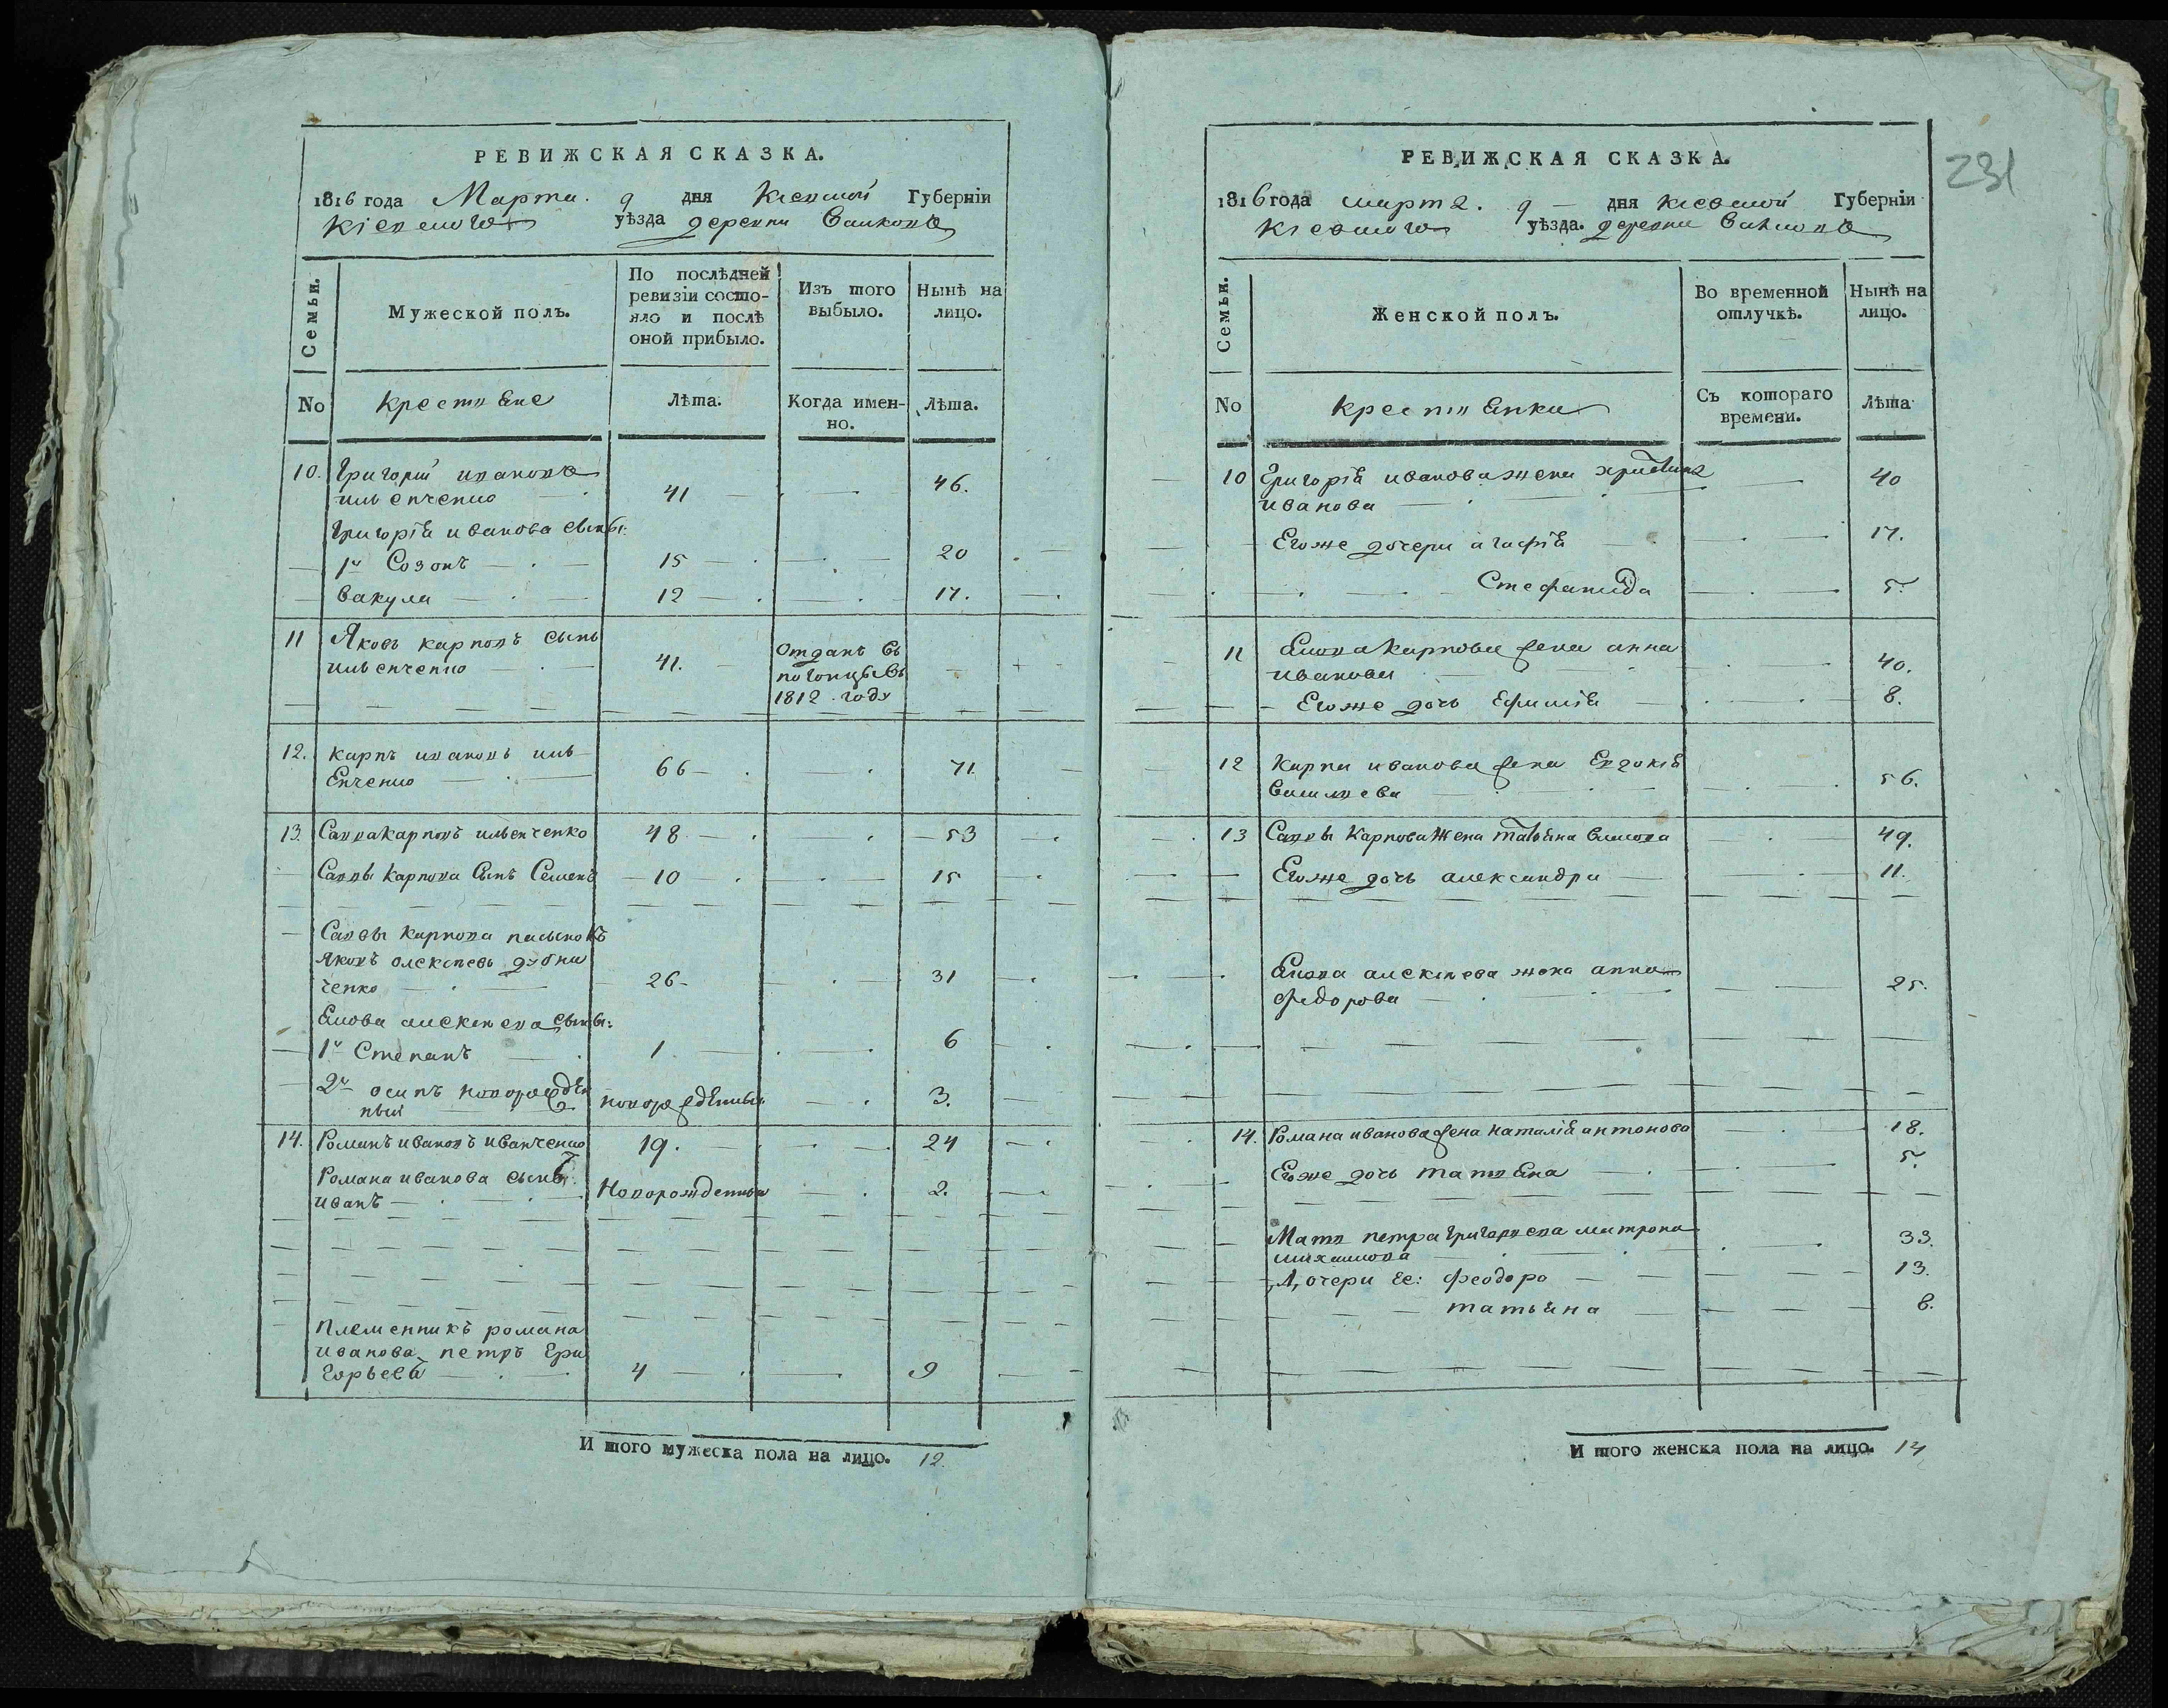 РЕВИЖСКАЯ СКАЗКА.
1816 года Марта. 9 дня Кіевской Губерніи
Кіевского уѣзда деревни
Семьи.
Мужеской полъ.
По послѣдней ревизіи состо-
яло и послѣ оной прибыло.
Изъ того выбыло.
Нынѣ на лицо.
No
крестьяне
Лѣта.
Когда имен-
но.
Лѣта.
10. Григорій ивановъ
ильенченко 41 46.
Григорія иванова сыны:
1й Созонъ 15 20
вакула 12 17.
11 Яковъ карповъ сынъ
ильенченко 41. Отданъ въ
погонцы въ
1812 году
12. карпъ ивановъ иль
енченко 66 71
13. Савва карповъ ильенченко 48 53
Саввы карпова сынъ Семенъ 10 15
Саввы карпова пасынокъ
яковъ олексѣевъ
ченко 26 31
якова алексѣева сыны:
1й Степанъ 1 6
2й осипъ новорожден
ный новорожденный 3.
14. Романъ ивановъ иванченко 19. 24
Романа иванова сынъ
иванъ Новорожденный 2.
Племенникъ романа
иванова петръ гри
горьевъ 4 9
И того мужеска пола на лицо. 12.
231
РЕВИЖСКАЯ СКАЗКА.
1816 года марта. 9 дня Кіевской Губерніи
Кіевского уѣзда. деревни
Семьи.
Женской полъ.
Во временной
отлучкѣ.
Нынѣ на
лицо.
No
крестьянки
Съ котораго
времени.
Лѣта
10 Григорія иванова жена христина
иванова 40
Его же дочери агафія 17.
Стефанида 5.
11 якова карпова жена анна
иванова 40.
Его же дочь Ефимія 8.
12 карпа иванова жена Евдокія
56.
13 Саввы карпова жена татьяна 49.
Его же дочь александра 11.
якова алексѣева жена анна
федорова 25.
14. Романа иванова жена наталія антонова 18.
Его же дочь татьяна 5.
Мать петра григорьева матрона
михайлова 33.
Дочери ее: феодора 13.
татьяна 8.
И того женска пола на лицо. 14